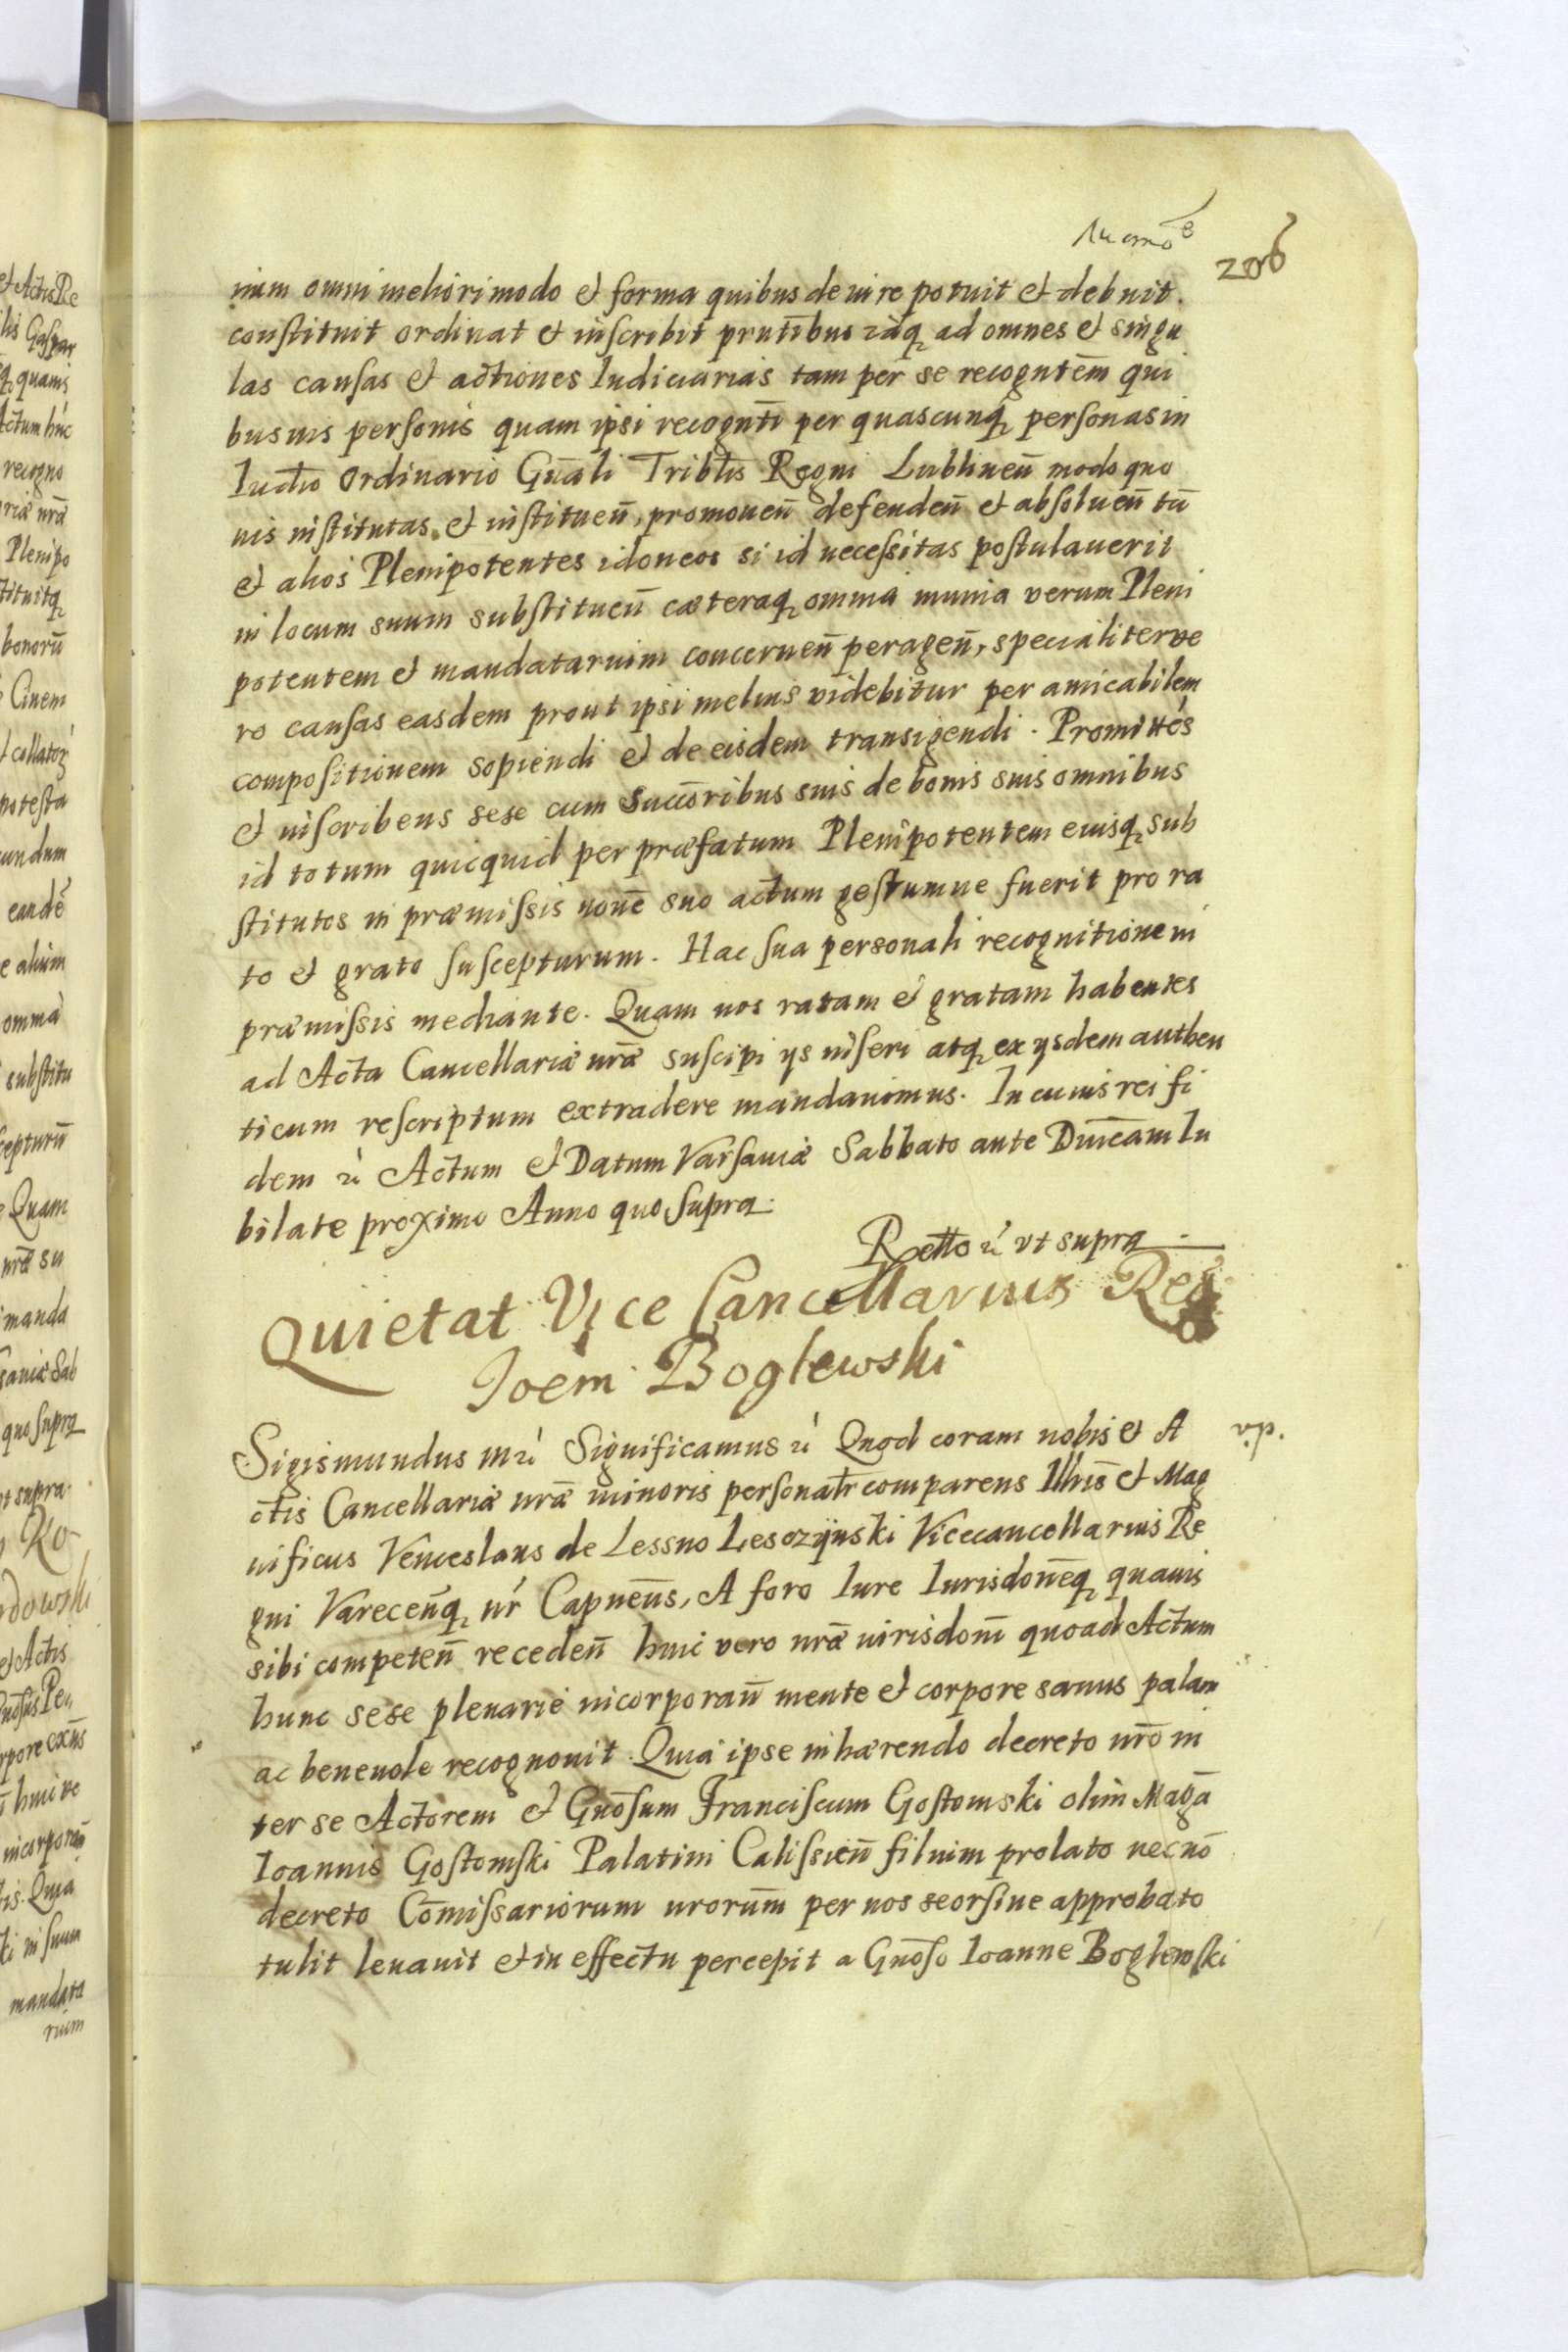 206
rium omni meliori modo et forma quibus de iure potuit et debuit.
constituit ordinat et inscribit pruñtibus itaq, ad omnes et singu
las causas et actiones Iudiciarias tam per se recogntēm qui
busuis personis quam ipsi recogntī per quascunq, personas in
Iudtio Ordinario Gnāli Triblis Regni Lublineñ modo quo
uis institutas et instituen̄, promouen̄ defenden̄ et absoluen̄ tū
et alios Plenipotentes idoneos si id necessitas postulauerit
in locum suum substituen̄ cæteraq, omnia munia verum Pleni
potentem et mandatarium concernen̄ peragen̄, specialiter ve
ro causas easdem prout ipsi melius videbitur per amicabilem
compositionem sopiendi et de eisdem transigendi. Promittēs
et inscribens sese cum Succoribus suis de bonis suis omnibus
id totum quicquid per præfatum Plenipotentem eiusq, sub
stitutos in præmissis noīe suo actum gestumue fuerit pro ra
to et grato suscepturum. Hac sua personali recognitione in
præmissis mediante. Quam nos ratam et gratam habentes
ad Acta Cancellariæ nrā suscipi ijs inseri atq, ex ijsdem authen
ticum rescriptum extradere mandauimus. In cuius rei fi
dem ñ Actum et Datum Varsauiæ Sabbato ante Dnīcam Iu
bilate proximo Anno quo supra.
Retto ñ vt supra
Quietat Vice Cancellarius Reg
Joēm Boglewski
Sigismundus ñ Significamus ñ Quod coram nobis et A
ctis Cancellariæ nrā minoris personalr comparens Illris et Mag
nificus Venceslaus de Lessno Lesczijnski Vicecancellarius Re
gni Varecen̄q, nr Capneus, A foro Iure Iurisdoneq, quauis
sibi competen̄ receden̄ huic vero nrā iurisdoni quoad Actum
hunc sese plenarie incorporan̄ mente et corpore sanus palam
ac beneuole recognouit. Quia ipse inhærendo decreto nrō in
ter se Actorem et Gnōsum Franciscum Gostomski olim Magci
Ioannis Gostomski Palatini Calissien̄ filium prolato necnō
decreto Cōmissariorum nrorum per nos seorsiue approbato
tulit leuauit et in effectu percepit a Gnōso Ioanne Boglewski